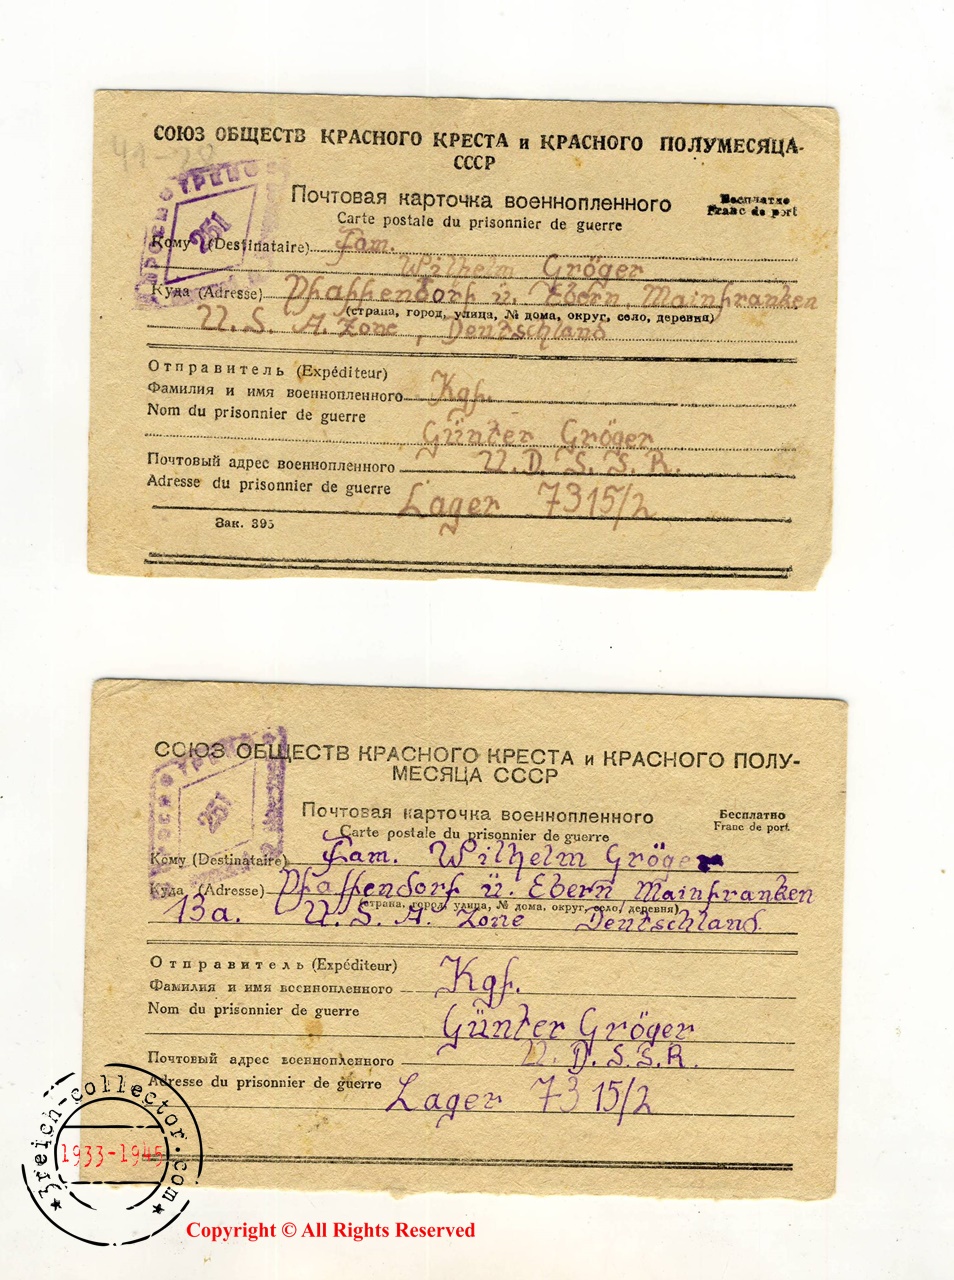 СОЮЗ ОБЩЕСТВ КРАСНОГО КРЕСТА и КРАСНОГО ПОЛУМЕСЯЦА-
СССР
Почтовая карточка военнопленного
Бесплатно
Carte postale du prisonnier de guerre
Franc de port
ПРОСМОТРЕНО
251
Кому (Destinataire) Fam.
Wilhelm Gröger
Куда (Adresse) Pfaffendorf ü. Ebern Mainfranken
(страна, город, улица, № дома, округ, село, деревня)
U. S. A. Zone, Deutschland
Отправитель (Expéditeur)
Фамилия и имя военнопленного Kgf.
Nom du prisonnier de guerre
Günter Gröger
Почтовый адрес военнопленного U. D. S. S. R.
Adresse du prisonnier de guerre
Lager 7315/2
Зак. 395
СОЮЗ ОБЩЕСТВ КРАСНОГО КРЕСТА и КРАСНОГО ПОЛУ-
МЕСЯЦА СССР
Почтовая карточка военнопленного
Бесплатно
Carte postale du prisonnier de guerre
Franc de port
ПРОСМОТРЕНО
251
Кому (Destinataire) Fam. Wilhelm Gröger
Куда (Adresse) Pfaffendorf ü. Ebern Mainfranken
(страна, город, улица, № дома, округ, село, деревня)
13a. U. S. A. Zone Deutschland
Отправитель (Expéditeur)
Фамилия и имя военнопленного Kgf.
Nom du prisonnier de guerre
Günter Gröger
Почтовый адрес военнопленного U. D. S. S. R.
Adresse du prisonnier de guerre
Lager 7315/2
3reich-collector.com
1933-1945
Copyright © All Rights Reserved